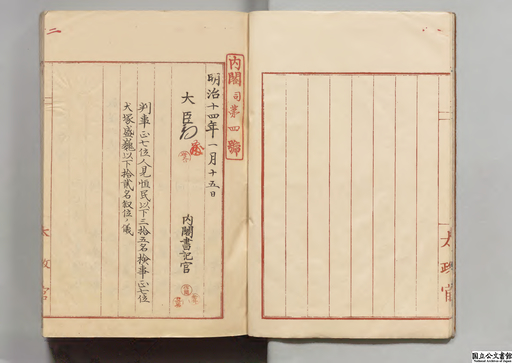 太政官
内閣司第四號
明治十四年一月十五日
大臣
内閣書記官
判事正七位人見恒民以下三拾五名検事正七位
犬塚盛巍以下拾貳名叙位ノ儀
二
太政官
国立公文書館
National Archives of Japan